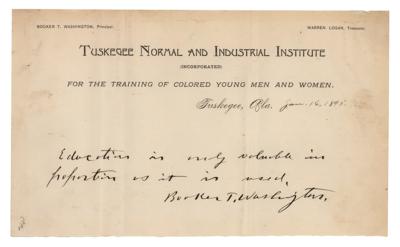 BOOKER T. WASHINGTON, Principal.
WARREN LOGAN, Treasurer.
TUSKEGEE NORMAL AND INDUSTRIAL INSTITUTE
(INCORPORATED)
FOR THE TRAINING OF COLORED YOUNG MEN AND WOMEN.
Tuskegee, Ala. Jan. 16, 
Education is only valuable in
proportion as it is used.
Booker T. Washington.